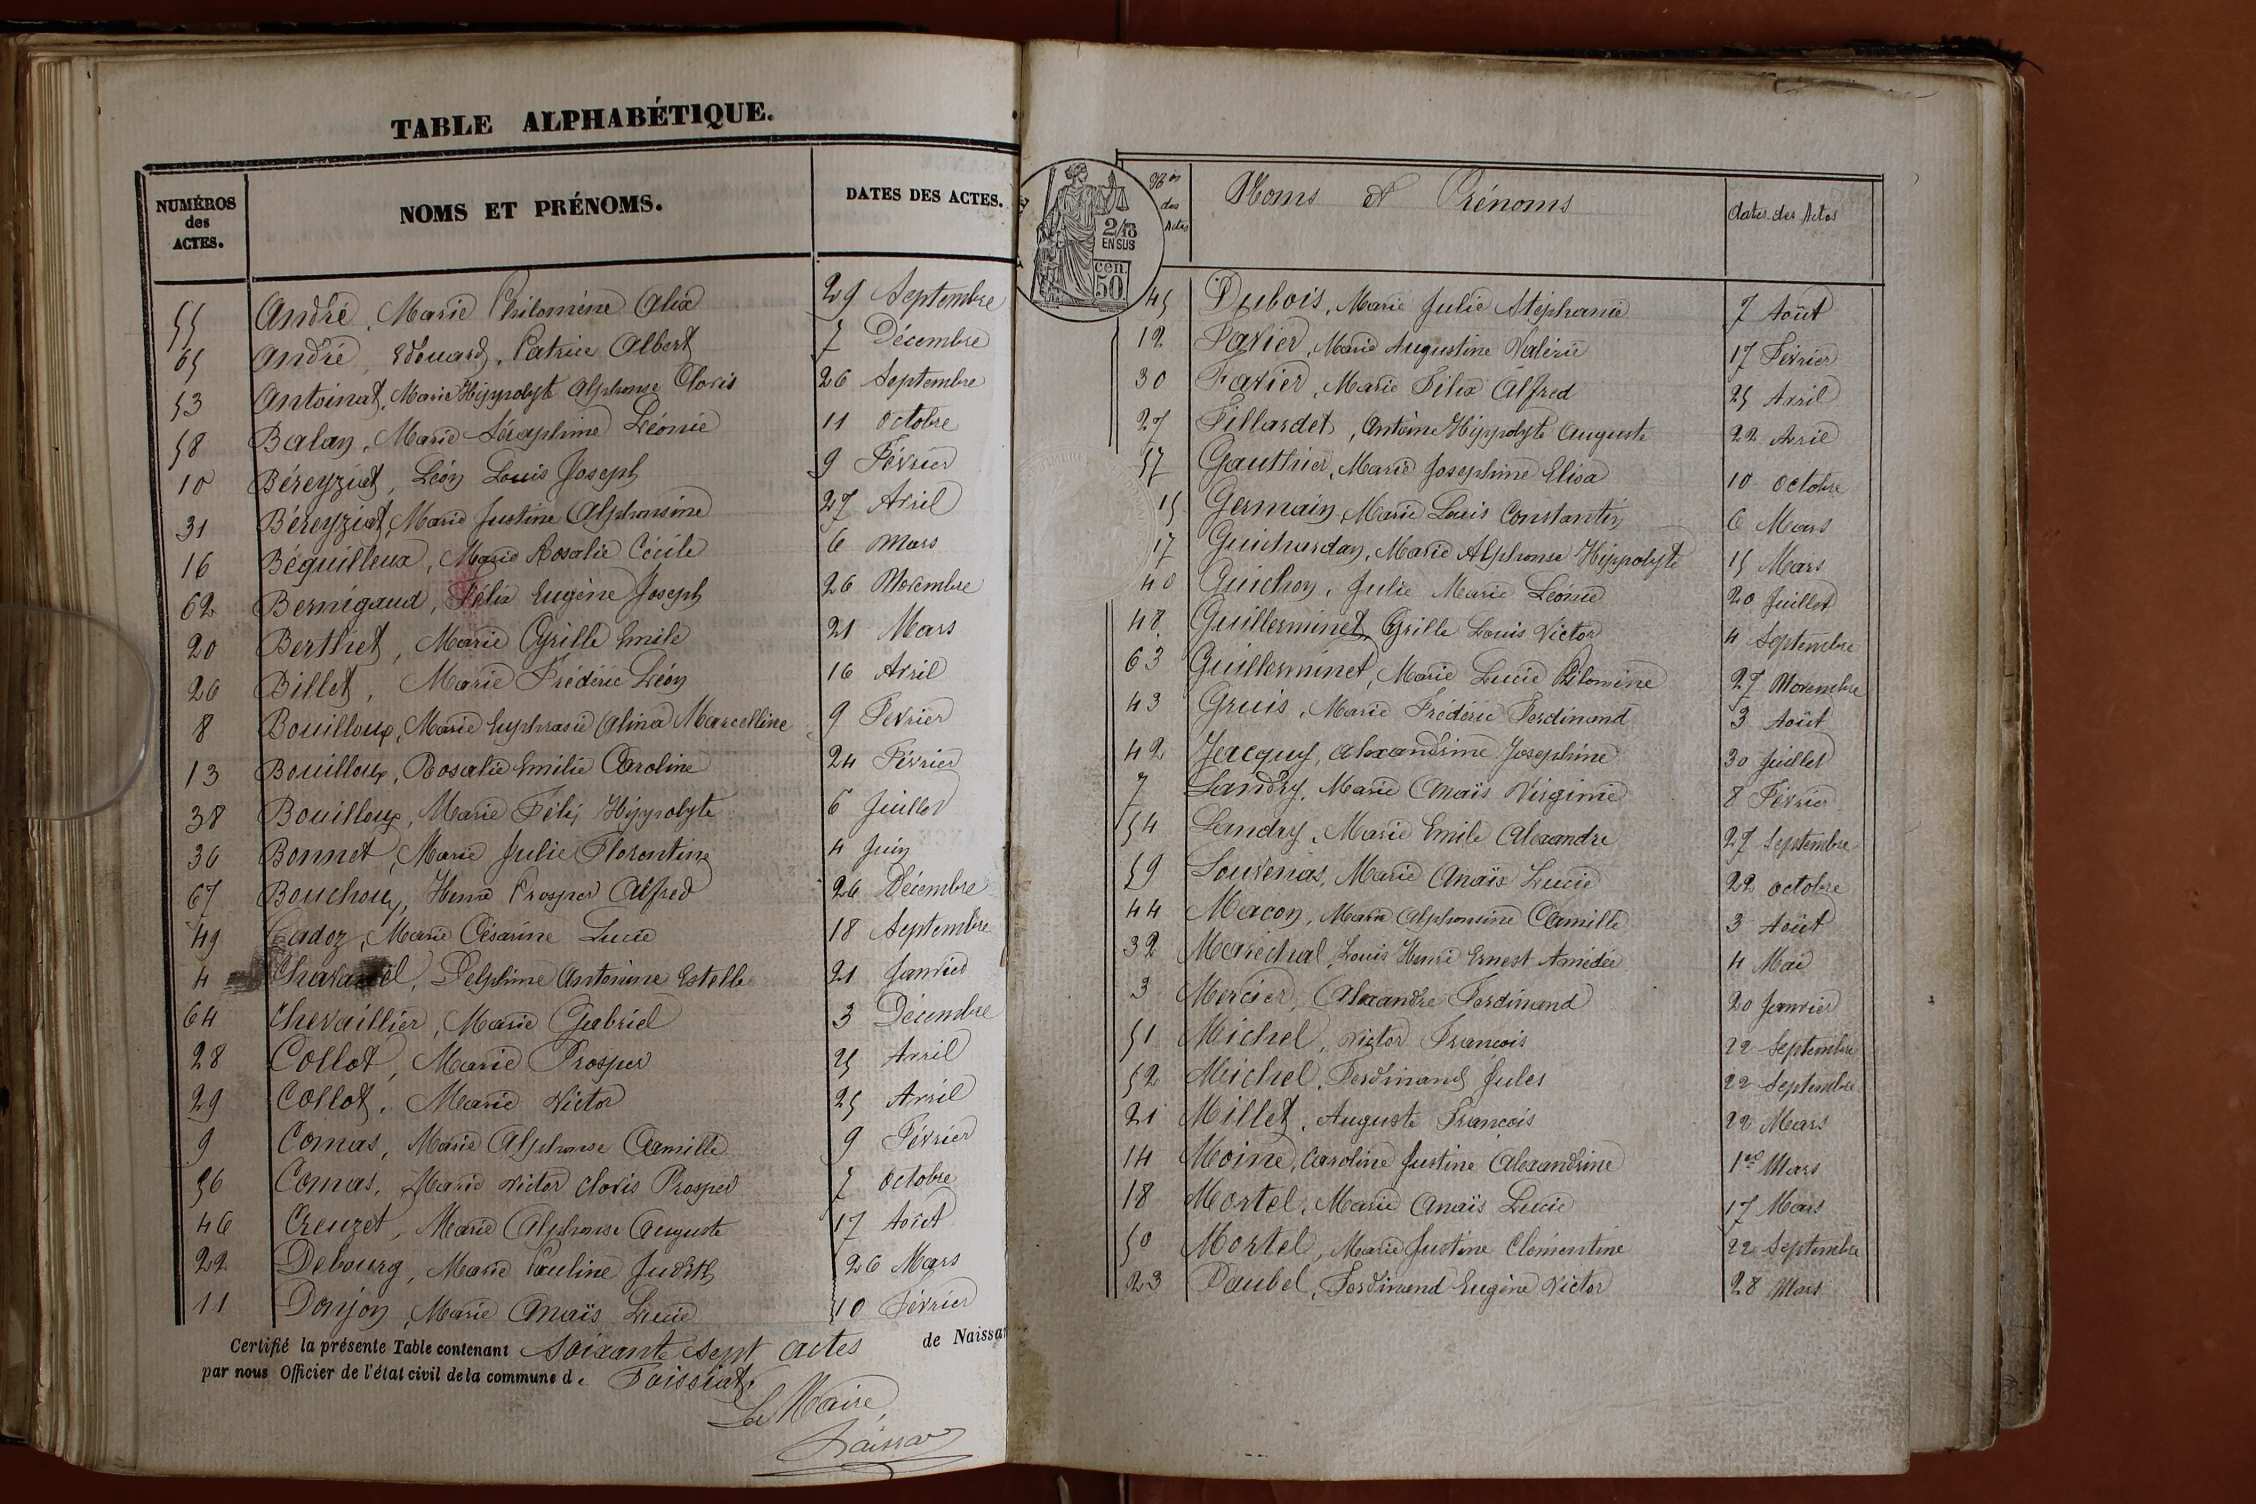 TABLE ALPHABÉTIQUE.
NUMÉROS des ACTES. NOMS ET PRÉNOMS. DATES DES ACTES.
55 André, Marie Philomène Alix 29 Septembre
65 André, Edouard, Patrice Albert 7 Décembre
53 Antoinat, Marie Hippolyte Alphonse Clovis 26 Septembre
58 Balay, Marie Séraphine Léonie 11 octobre
10 Béreyziat, Léon Louis Joseph 9 Février
31 Béreyziat, Marie Justine Alphonsine 27 Avril
16 Béguilleux, Marie Rosalie Cécile 6 mars
62 Bernigaud, Félix Eugène Joseph 26 Novembre
20 Berthet, Marie Cyrille Emile 21 Mars
26 Billet, Marie Frédéric Léon 16 Avril
8 Bouilloux, Marie Euphrasie Alina Marcelline 9 Février
13 Bouilloux, Rosalie Emilie Caroline 24 Février
38 Bouilloux, Marie Félix Hippolyte 6 Juillet
36 Bonnet, Marie Julie Florentine 4 Juin
67 Bouchoux, Henri Prosper Alfred 26 Décembre
49 Cadoz, Marie Césarine Lucie 18 Septembre
4 Chavanel, Delphine Antonine Estelle 21 Janvier
64 Chevaillier, Marie Gabriel 3 Décembre
28 Collot, Marie Prosper 25 Avril
29 Collot, Marie Victor 25 Avril
9 Comas, Marie Alphonse Camille 9 Février
56 Comas, Marie Victor Clovis Prosper 7 octobre
46 Creuzet, Marie Alphonse Auguste 17 Août
22 Debourg, Marie Pauline Judith 26 Mars
11 Donjon, Marie Anaïs Lucie 10 Février
Certifié la présente Table contenant Soixante sept actes de Naissan
par nous Officier de l'état civil de la commune de Foissiat
Le Maire,
2/10 EN SUS
50 cen.
Nos des Actes Noms et Prénoms dates des Actes
45 Dubois, Marie Julie Stéphanie 7 Août
12 Favier, Marie Augustine Valérie 17 Février
30 Favier, Marie Félix Alfred 25 Avril
27 Fillardet, Antoine Hippolyte Auguste 22 Avril
57 Gauthier, Marie Josephine Elisa 10 octobre
15 Germain, Marie Louis Constantin 6 Mars
17 Guichardan, Marie Alphonse Hippolyte 15 Mars
40 Guichon, Julie Marie Léonie 20 Juillet
48 Guillerminet, Cyrille Louis Victor 4 Septembre
63 Guillerminet, Marie Lucie Philomène 27 Novembre
43 Gruis, Marie Frédéric Ferdinand 3 Août
42 Jacquy, Alexandrine Josephine 30 Juillet
7 Landry, Marie Anaïs Virginie 8 Février
54 Landry, Marie Emile Alexandre 27 Septembre
59 Louvenas, Marie Anaïs Lucie 22 octobre
44 Macon, Marie Alphonsine Camille 3 Août
32 Maréchal, Louis Henri Ernest Amédée 4 Mai
3 Mercier, Alexandre Ferdinand 20 Janvier
51 Michel, Victor François 22 Septembre
52 Michel, Ferdinand Jules 22 Septembre
21 Millet, Auguste François 22 Mars
14 Moine, Caroline Justine Alexandrine 1er Mars
18 Mortel, Marie Anaïs Lucie 17 Mars
50 Mortel, Marie Justine Clémentine 22 Septembre
23 Paubel, Ferdinand Eugène Victor 28 Mars